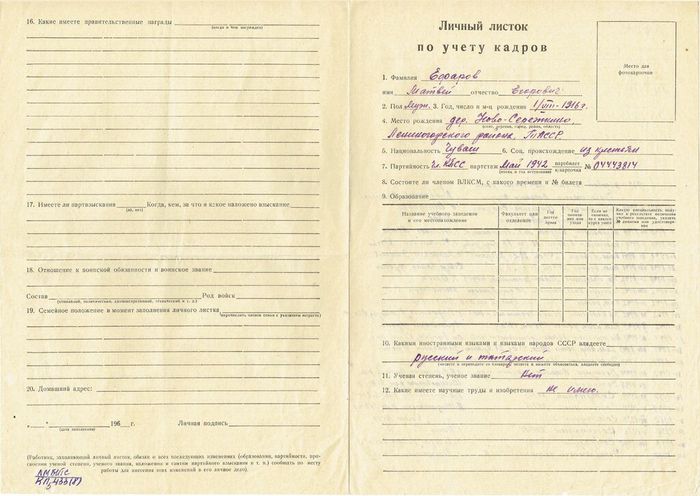 16. Какие имеете правительственные награды
(когда и чем награждены)
17. Имеете ли партвзыскания Когда, кем, за что и какое наложено взыскание
(да, нет)
18. Отношение к воинской обязанности и воинское звание
Состав Род войск
(командный, политический, административный, технический и т. д.)
19. Семейное положение в момент заполнения личного листка
(перечислить членов семьи с указанием возраста)
20. Домашний адрес:
„ “ 196 г. Личная подпись
(дата заполнения)
(Работник, заполняющий личный листок, обязан о всех последующих изменениях (образовании, партийности, присвоении ученой степени, ученого звания, наложении и снятии партийного взыскания и т. п.) сообщать по месту
работы для внесения этих изменений в его личное дело).
Личный листок
по учету кадров
Место для
фотокарточки
1. Фамилия Ефаров
имя Матвей отчество Егорович
2. Пол Муж. 3. Год, число и м-ц рождения 1/VIII-1916 г.
4. Место рождения дер. Ново-Сережкино,
(село, деревня, город, район, область)
Лениногорского района, ТАССР
5. Национальность Чуваш 6. Соц. происхождение из крестьян
7. Партийность Чл. КПСС партстаж Май 1942 партбилет
(месяц и год вступления) к/карточка № 04443814
8. Состоите ли членом ВЛКСМ, с какого времени и № билета
9. Образование
Название учебного заведения
и его местонахождение
Факультет или
отделение
Год
поступления
Год
окончания
или ухода
Если не
окончил,
то с какого
курса ушел
Какую специальность получил в результате окончания учебного заведения, указать № диплома или удостоверения
10. Какими иностранными языками и языками народов СССР владеете
русский и татарский
(читаете и переводите со словарем, читаете и можете объясняться, владеете свободно)
11. Ученая степень, ученое звание нет
12. Какие имеете научные труды и изобретения не имею.